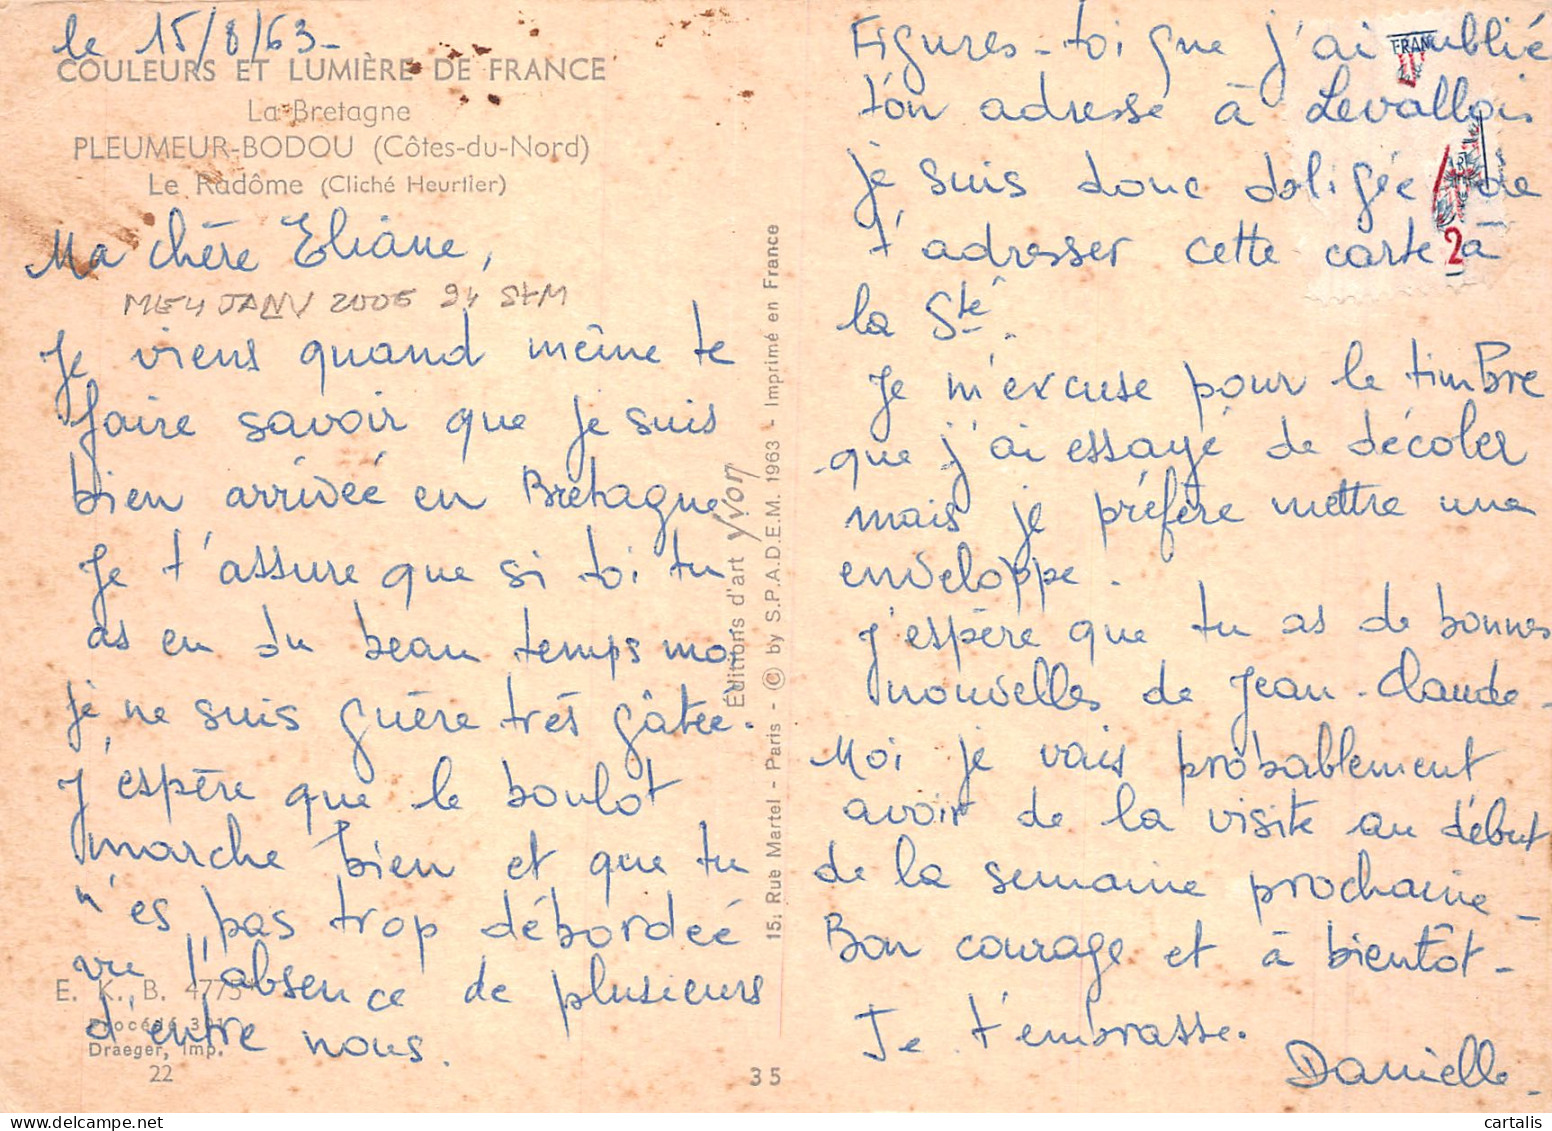 le 15/8/63-
COULEURS ET LUMIÈRE DE FRANCE
La Bretagne
PLEUMEUR-BODOU (Côtes-du-Nord)
Le Radôme (Cliché Heurtier)
Ma chère Eliane,
JANV 2006
Je viens quand même te
faire savoir que je suis
bien arrivée en Bretagne
Je t'assure que si toi tu
as eu du beau temps moi
je ne suis guère très gâtée.
J'espère que le boulot
marche bien et que tu
n'es pas trop débordée
vu l'absence de plusieurs
d'entre nous.
E. K. B. 4775
Procédé 301
Draeger, imp.
22
Éditions d'art Yvon
15, Rue Martel - Paris - © by S.P.A.D.E.M. 1963 - Imprimé en France
35
FRAN
2
Figures-toi que j'ai oublié
ton adresse à Levallois
je suis donc obligée de
t'adresser cette carte à
la Sté.
Je m'excuse pour le timbre
que j'ai essayé de décoler
mais je préfère mettre une
enveloppe.
J'espère que tu as de bonnes
nouvelles de Jean-Claude-
Moi je vais probablement
avoir de la visite au début
de la semaine prochaine-
Bon courage et à bientôt-
Je t'embrasse.
Danielle-
cartalis